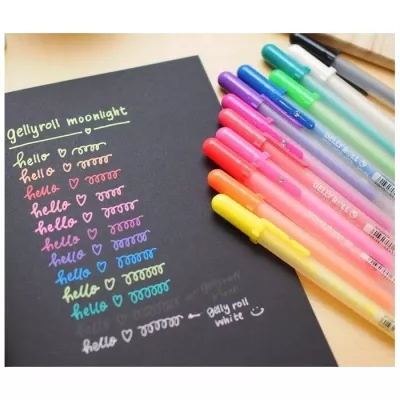 gellyroll moonlight
hello
hello
hello
hello
hello
hello
hello
hello
hello
hello
hello
hello ← gelly roll
white
GELLY ROLL